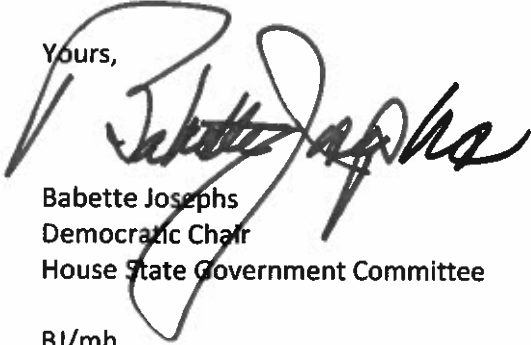 Yours,
Babette Josephs
Babette Josephs
Democratic Chair
House State Government Committee
BJ/mh